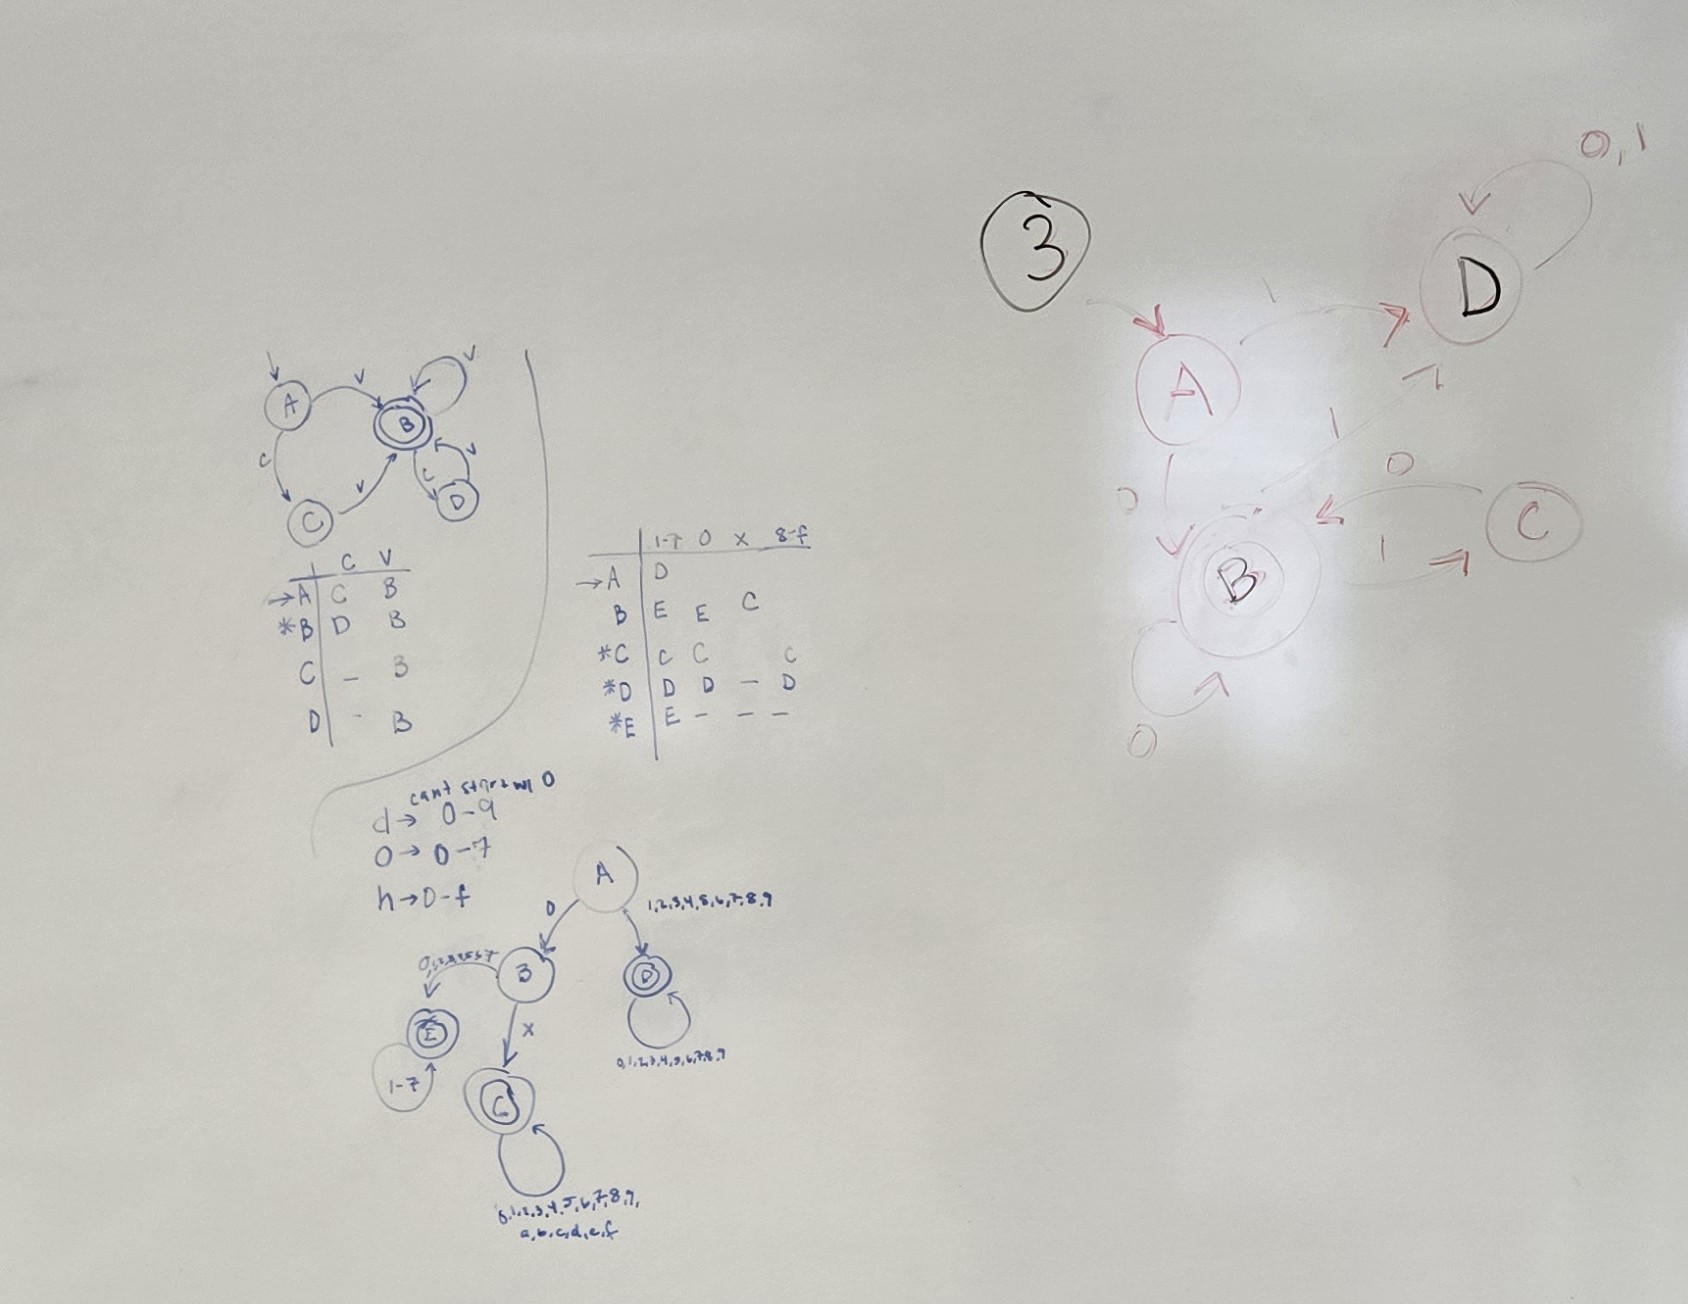 A
V
B
V
C
V
C
V
D
C
C V
→A C B
*B D B
C – B
D - B
1-7 0 x 8-f
→A D
B E E C
*C C C C
*D D D – D
*E E – – –
cant start w/ 0
d→ 0-9
0→ 0-7
h→0-f
A
0
1,2,3,4,5,6,7,8,9
B
D
0,1,2,3,4,5,6,7,8,9
E
1-7
x
C
0,1,2,3,4,5,6,7,8,9,
a,b,c,d,e,f
3
0,1
D
1
A
1
0
0
C
1
B
0